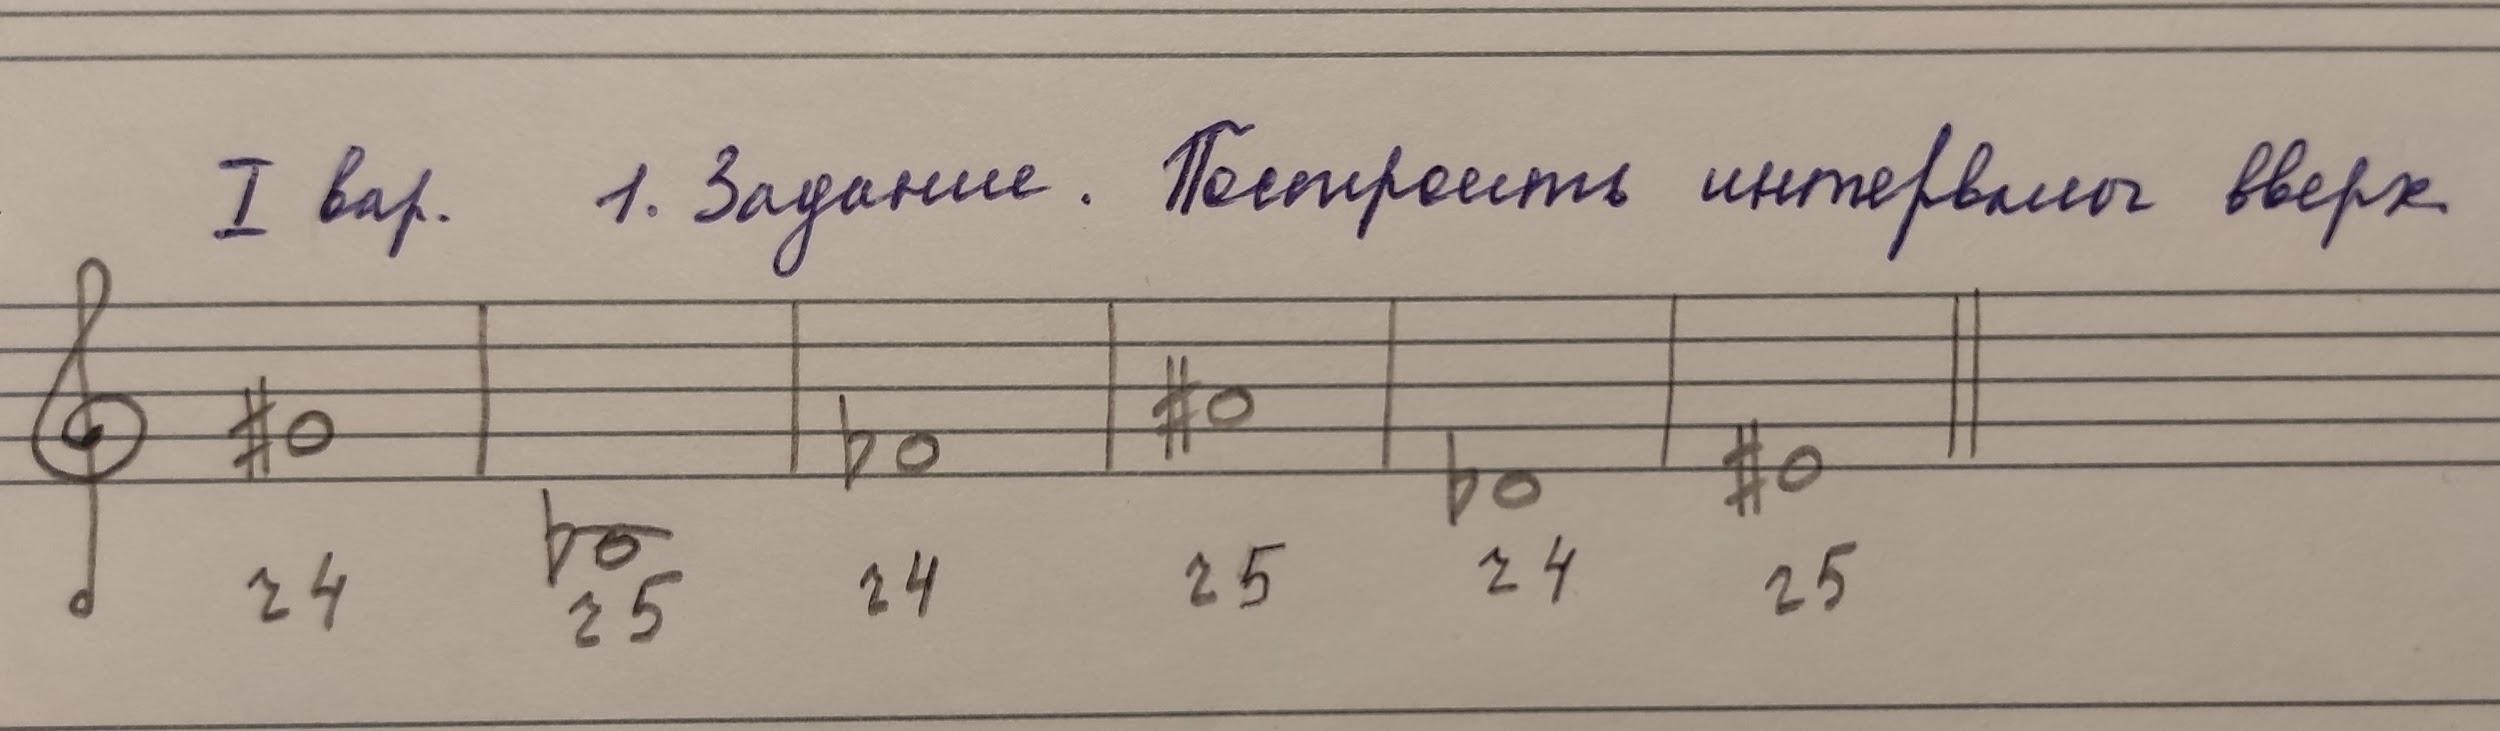 I вар. 1. Задание. Построить интервалы вверх
ч4 ч5 ч4 ч5 ч4 ч5